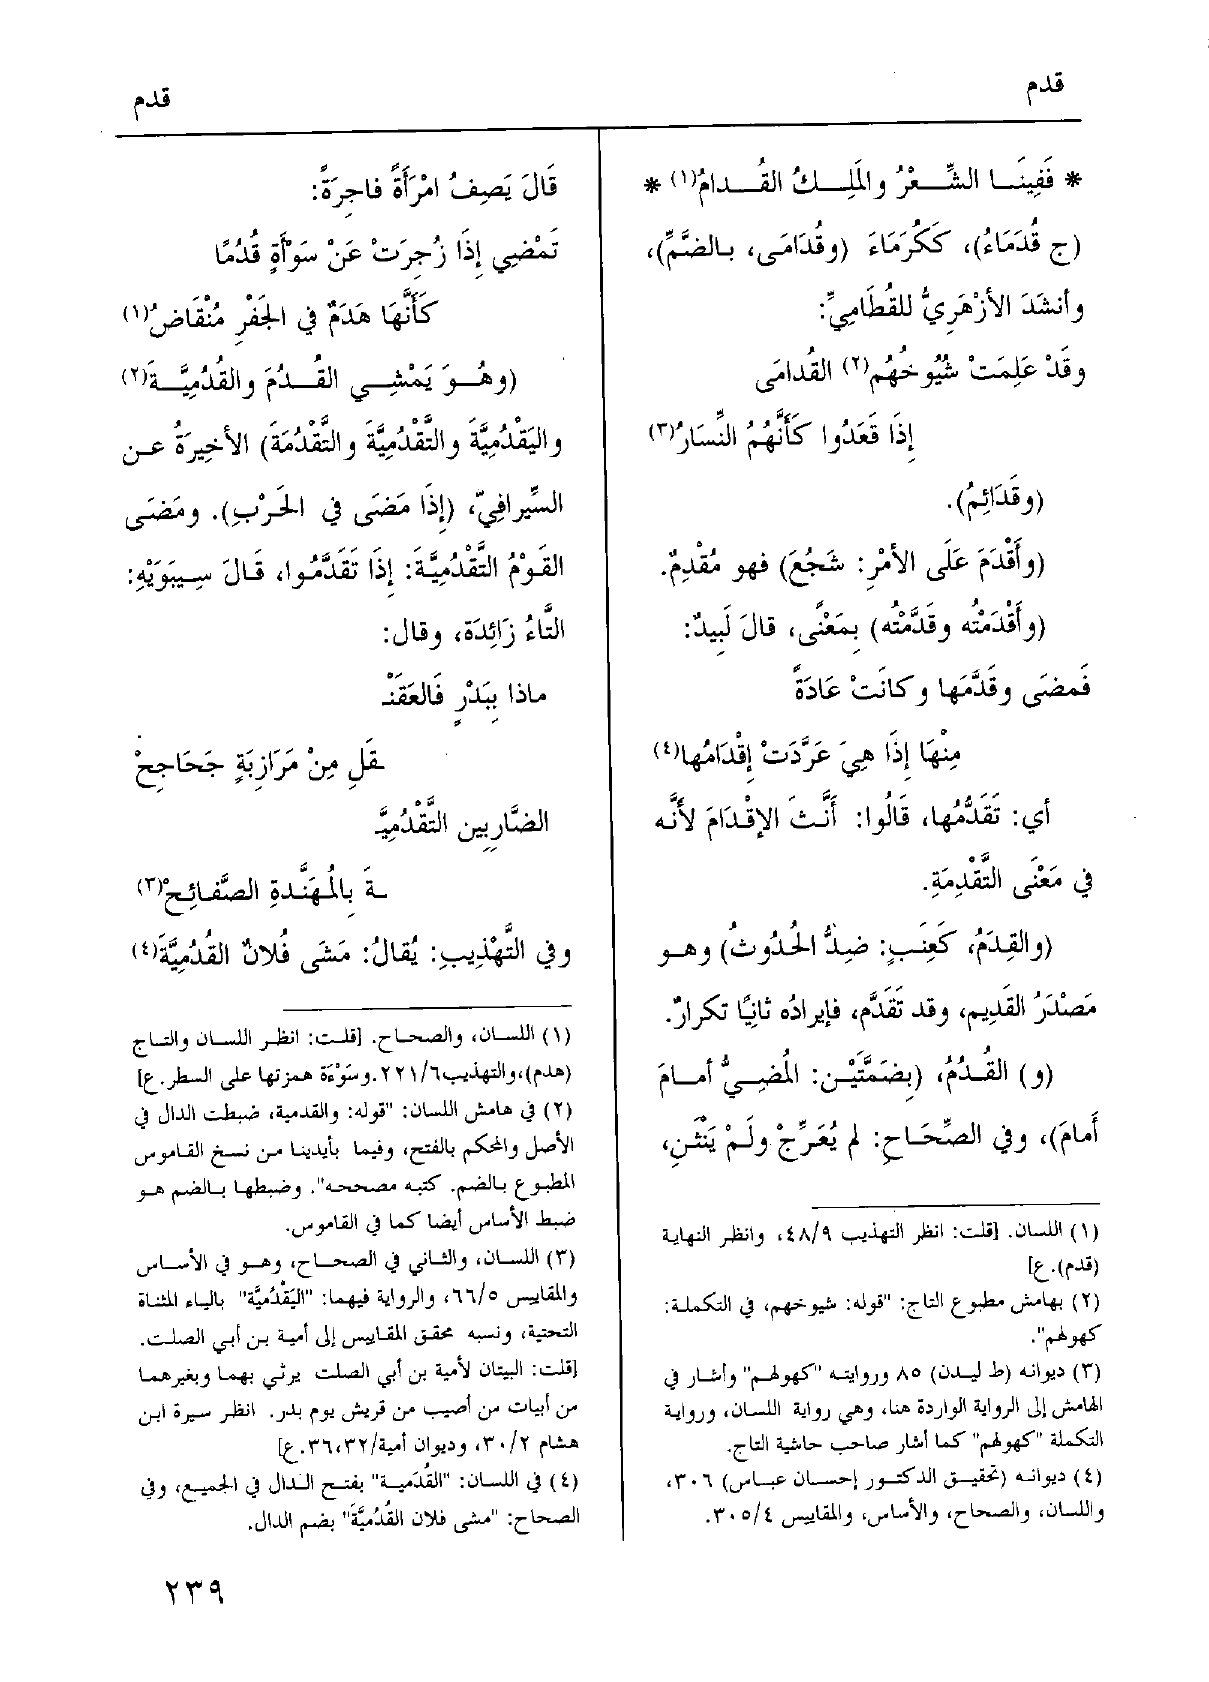 قدم
قدم
* فَفِينَـا الشِّـعْرُ والمَلِـكُ القُـدامُ(١) *
(ج قُدَمَاءُ)، كَكُرَمَاءَ (وقُدَامَى، بـالضَّمِّ)،
وأنشَدَ الأزْهَرِيُّ للقُطَامِيِّ:
وقَدْ عَلِمَتْ شُيُوخُهُم(٢) القُدامَى
إِذَا قَعَدُوا كَأَنَّهُمُ النِّسَارُ(٣)
(وقَدَائِمُ).
(وأَقْدَمَ عَلَى الأَمْرِ: شَجُعَ) فهو مُقْدِمٌ.
(وأَقْدَمْتُه وقَدَّمْتُه) بِمَعْنًى، قالَ لَبِيدٌ:
فَمضَى وقَدَّمَها وكانَتْ عَادَةً
مِنْهَا إِذَا هِيَ عَرَّدَتْ إِقْدَامُها(٤)
أي: تَقَدُّمُها، قَالُوا: أَنَّثَ الإقْدَامَ لأَنَّه
في مَعْنَى التَّقْدِمَةِ.
(والقِدَمُ، كَعِنَبٍ: ضِدُّ الحُدُوثُ) وهـو
مَصْدَرُ القَدِيم، وقد تَقَدَّم، فإيرادُه ثانِيًا تكرارٌ.
(و) القُدُمُ، (بِضَمَّتَيْـن: المُضِـيُّ أمـامَ
أَمامَ)، وفي الصِّحَاحِ: لم يُعَرِّجْ ولَمْ يَنْثَنِ،
(١) اللسان. [قلت: انظر التهذيب ٤٨/٩، وانظر النهاية
(قدم). ع]
(٢) بهامش مطبوع التاج: "قوله: شيوخهم، في التكملة:
كهولهم".
(٣) ديوانه (ط ليـدن) ٨٥ وروايتـه "كهولهـم" وأشـار في
الهامش إلى الرواية الواردة هنا، وهي رواية اللسان، ورواية
التكملة "كهولهم" كما أشار صاحب حاشية التاج.
(٤) ديوانه (تحقيـق الدكتـور إحسـان عبـاس) ٣٠٦،
واللسان، والصحاح، والأساس، والمقاييس ٣٠٥/٤.
قَالَ يَصِفُ امْرَأَةً فاجِرَةً:
تَمْضِي إِذَا زُجِرَتْ عَنْ سَوْأَةٍ قُدُمًا
كَأَنَّهَا هَدَمٌ في الجَفْرِ مُنْقَاضُ(١)
(وهُـوَ يَمْشِـي القُـدُمَ والقُدُمِيَّـةَ(٢)
واليَقْدُمِيَّةَ والتَّقْدُمِيَّةَ والتَّقْدُمَةَ) الأخِيرَةُ عـن
السِّيرافِيّ، (إِذَا مَضَى في الحَرْبِ). ومَضَى
القَوْمُ التَّقْدُمِيَّـةَ: إِذَا تَقَدَّمُـوا، قَـالَ سِـيبَوَيْهِ:
التَّاءُ زَائِدَة، وقال:
ماذا بِبَدْرٍ فَالعَقَنْـ
ـقَلِ مِنْ مَرَازِبَةٍ جَحَاجِحْ
الضّارِبِين التَّقْدُمِيَّـ
ـةَ بِالمُهَنَّدةِ الصَّفـائِحْ(٣)
وفي التَّهْذِيبِ: يُقالُ: مَشَى فُلانٌ القُدُمِيَّةَ(٤)
(١) اللسـان، والصحاح. [قلت: انظـر اللسـان والتـاج
(هدم)، والتهذيب٢٢١/٦. وسَوْءَة همزتها على السطر. ع]
(٢) في هامش اللسان: "قوله: والقدمية، ضبطت الدال في
الأصل والمحكم بالفتح، وفيما بأيدينا مـن نسـخ القـاموس
المطبوع بالضم. كتبه مصححه". وضبطها بـالضم هـو
ضبط الأساس أيضا كما في القاموس.
(٣) اللسـان، والثـاني في الصحـاح، وهـو في الأسـاس
والمقاييس ٦٦/٥، والرواية فيهما: "اليَقْدُمِيَّة" بالياء المثناة
التحتية، ونسبه محقق المقـاييس إلى أمية بـن أبـي الصلت.
[قلت: البيتان لأمية بن أبي الصلت يرثي بهمـا وبغيرهمـا
من أبيات من أصيب من قريش يوم بدر. انظر سيرة ابـن
هشام ٣٠/٢، وديوان أمية/٣٦،٣٢. ع]
(٤) في اللسان: "القُدَميـة" بفتـح الـدال في الجميـع، وفي
الصحاح: "مشى فلان القُدُمِيَّةَ" بضم الدال.
٢٣٩